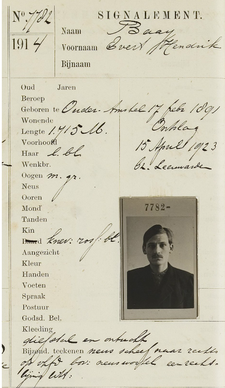 No. 7782
1914
SIGNALEMENT.
Naam Baay
Voornaam Evert Hendrik
Bijnaam
Oud Jaren
Beroep
Geboren te Ouder-Amstel 17 febr 1891
Wonende Ontslag
Lengte 1.715 M. 15 April 1923
Voorhoofd
Haar l. bl. Leeuwarden
Wenkbr.
Oogen m. gr.
Neus
Ooren
Mond
Tanden
Kin
knev: ros bl.
Aangezicht
Kleur
Handen
Voeten
Spraak
Postuur
Godsd. Bel.
Kleeding
diefstal en ontucht
Bijzond. teekenen neus scheef naar rechts
bov: neuswortel en rechts
7782-